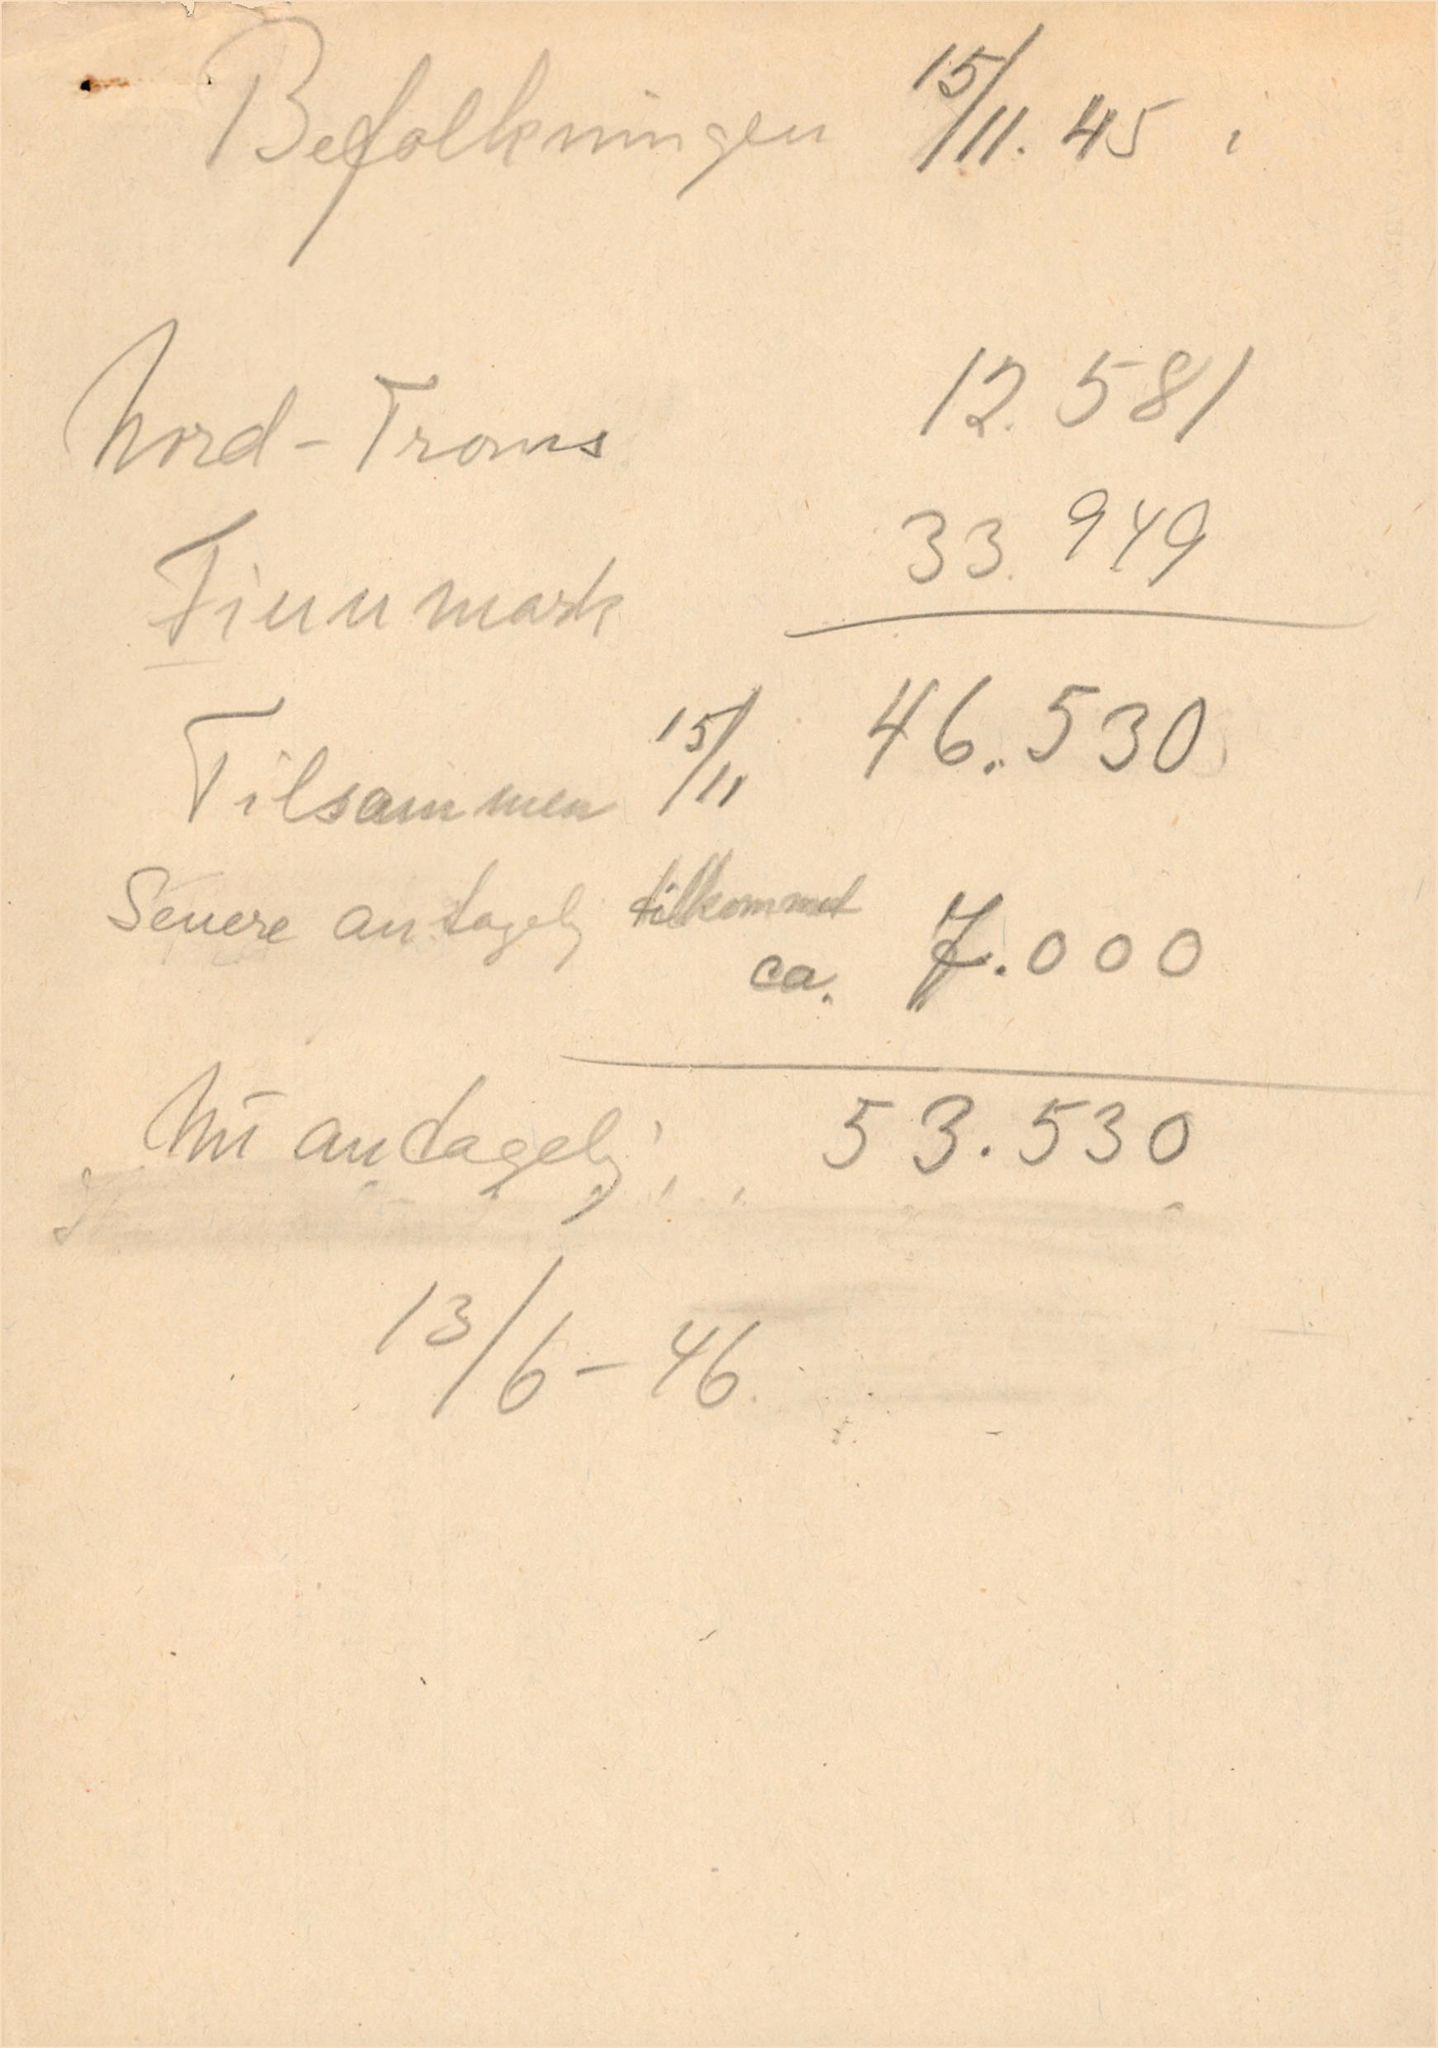 Befolkningen 15/11. 45.
Nord-Troms 12.581
Finnmark 33.949
Tilsammen 15/11 46.530
Senere antagelig tilkommet
ca. 7.000
Nu antagelig: 53.530
13/6-46